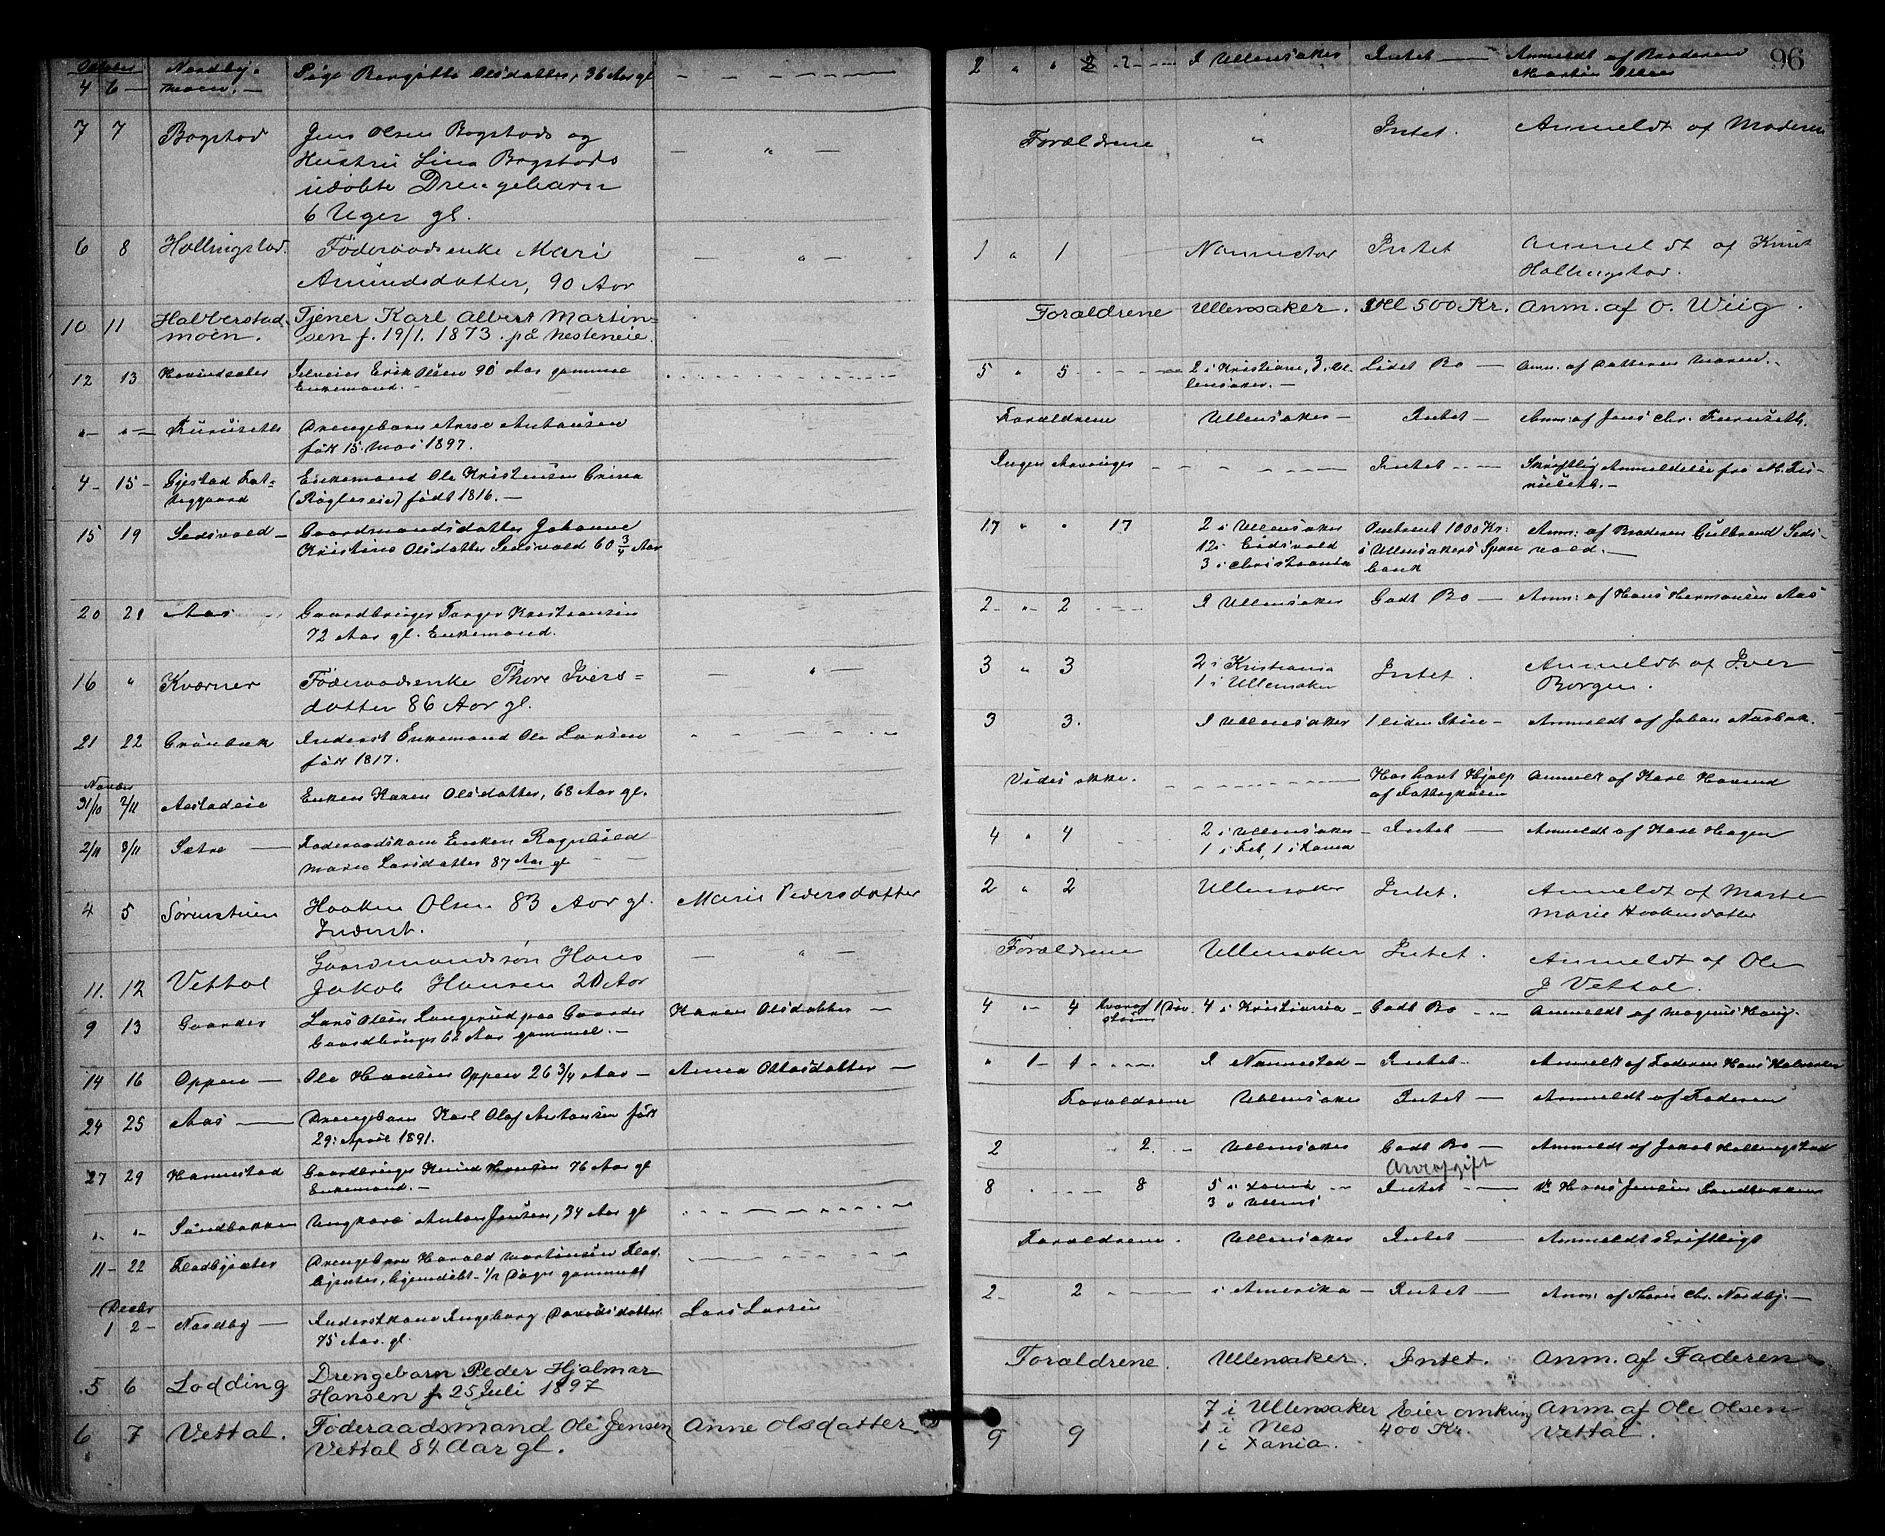 96
October
4 6 — Nordby- Pige Birgitte Olsdatter, 36 Aar gl — — 2 " " 2 I Ullensaker Intet — Anmeldt af Broderen
moen. — Martin Olsen
7 7 Bogstad Jens Olsen Bogstads og — " — Forældrene " Intet. Anmeldt af Moderen
Hustru Lina Bogstads
udøbte Drengebarn
6 Uger gl.
6 8 Hollingstad. Føderaadsenke Mari — " — 1 " 1 Nannestad Intet Anmeldt af Knut
Amundsdatter, 90 Aar Hollingstad.
10 11 Halberstad- Tjener Karl Albert Martin= Forældrene Ullensaker. Ell 500 Kr. Anm. af O. Wiig.
moen. sen f. 19/1. 1873. på Nesteneie.
12 13 Erik Olsen 90 Aar gammel 5 " 5 2 i Kristiania, 3 i Ul- Lidet Bo — Anm. af Datteren Maren. —
Enkemand. — lensaker. —
" — " — Furuseth Drengebarn Arne Antonsen Forældrene Ullensaker — Intet — Anm: af Jens Chr. Furuseth.
født 15 Mai 1897.
4 — 15 — Gjestad Fat- Enkemand Ole Kristensen Ingen Arvinger — — Intet — Skriftlig Anmeldelse fra
tiggaard (Røgleseie) født 1816. —
15 19 Sedsvold — Gaardmandsdatter Johanne 17 " " 17 2 i Ullensaker 1000 Kr: Anm: af Broderen Gulbrand Seds-
Kristine Olsdatter Sedsvold 60 3/4 Aar 12 i Eidsvold i Ullensakers Spare vold. —
3 i Christiania bank
20 21 Aas Gaardbruger Torger Kristiansen 2 - " 2 I Ullensaker Godt Bo — Anm: af Hans Hermansen Aas
72 Aar gl. Enkemand.
16 " Kværner Føderaadsenke Thore Ivers= — " — 3 " 3 2 i Kristiania Intet. Anmeldt af Iver
datter 86 Aar gl. 1 i Ullensaker Borgen.
21 22 Grønbæk Inderst Enkemand Ole Larsen 3 3. I Ullensaker 1 liden Stue — Anmeldt af Johan Næsbak.
født 1817.
Novbr
31/10 2/11 Aastadeie Enken Karen Olsdatter, 68 Aar gl. Vides ikke. Har havt Hjælp Anmeldt af Karl Hovind
af Fattigkassen
2/11 3/11 Sætre — Føderaadskone Enken Ragnhild 4 " 4 2 i Ullensaker Intet — Anmeldt af Karl Hagen
Marie Larsdatter 87 Aar gl 1 i Fet, 1 i Xania
4 5 Sørenstuen Haaken Olsen 83 Aar gl. Marie Pedersdatter 2 " 2 Ullensaker Intet. Anmeldt af Marte
Inderst. Marie Haakensdatter
11. 12 Vettal Gaardmandssøn Hans — " — Forældrene Ullensaker Intet. Anmeldt af Ole
Jakob Hansen 20 Aar J Vettal.
9 13 Gaarder Lars Olsen Langerud paa Gaarder Karen Olsdatter — 4 " 4 hvoraf 1 4 i Kristiania — Godt Bo — Anmeldt af Magnus Haug.
Gaardbruger 62 Aar gammel. —
14 16 Oppen — Ole Hansen Oppen 26 3/4 Aar — Anna Ottosdatter — " 1 - 1 I Nannestad — Intet. Anmeldt af Faderen Hans Halvorsen
24 25 Aas — Drengebarn Karl Olaf Antonsen født Forældrene Ullensaker Intet — Anmeldt af Faderen
29: April 1891.
27 29 Hannestad Gaardbruger Knud Hansen 76 Aar gl 2 2. Ullensaker Godt Bo — Anmeldt af Jakob Hollingstad
Enkemand. — Arveafgift
" - " - Sandbakken Ungkarl Anton Jensen, 34 Aar gl 8 8 5 i Xania Intet — Hans Jensen Sandbakken
3 i Ullens
11 — 22 Fladbysæter Drengebarn Harald Martinsen Flad- Forældrene. Ullensaker Intet — Anmeldt skriftligt
bysæter, hjemdøbt 1/2 Døgn gammelt
Decbr
1 2 — Nordby — Inderstkone Ingeborg Davidsdatter Lars Larsen 2 - 2 i Amerika — Intet — Anm: af Chr. Nordby. —
75 Aar. gl.
5 6 Lodding Drengebarn Peder Hjalmar Forældrene. Ullensaker. Intet. Anm. af Faderen
Hansen f. 25 Juli 1897
6 7 Vettal. Føderaadsmand Ole Jensen Anne Olsdatter. 9 9 7 i Ullensaker Eier omkring Anm. af Ole Olsen
Vettal 84 Aar gl. 1 i Nes 400 Kr. Vettal.
1 i Xania.